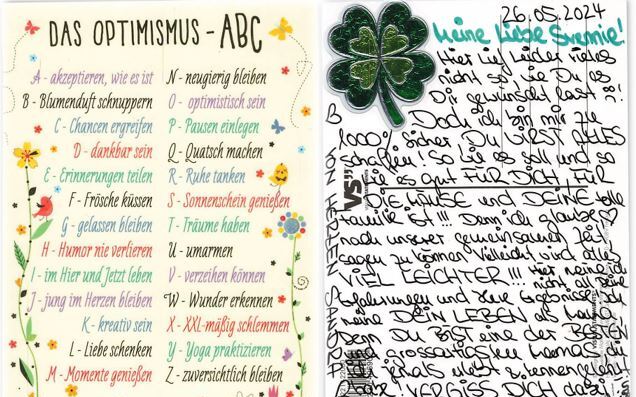 DAS OPTIMISMUS - ABC
A - akzeptieren, wie es ist
B - Blumenduft schnuppern
C - Chancen ergreifen
D - dankbar sein
E - Erinnerungen teilen
F - Frösche küssen
G - gelassen bleiben
H - Humor nie verlieren
I - im Hier und Jetzt leben
J - jung im Herzen bleiben
K - kreativ sein
L - Liebe schenken
M - Momente genießen
N - neugierig bleiben
O - optimistisch sein
P - Pausen einlegen
Q - Quatsch machen
R - Ruhe tanken
S - Sonnenschein genießen
T - Träume haben
U - umarmen
V - verzeihen können
W - Wunder erkennen
X - XXL-mäßig schlemmen
Y - Yoga praktizieren
Z - zuversichtlich bleiben
26.05.2024
Meine Liebe Svennie!
Hier lief leider vieles
nicht so wie Du es
Dir gewünscht hast
Doch ich bin mir zu
1000% sicher DU WIRST ALLES
schaffen! So wie es soll und so
wie es gut FÜR DICH, FÜR
DIE MÄUSE und DEINE tolle
Familie ist!!! Denn ich glaube
nach unserer gemeinsamen Zeit
sagen zu können vielleicht wird alles
VIEL LEICHTER!!! Hier meine ich
Erfahrungen und Ergebnisse
meine DEIN LEBEN
Denn DU BIST eine der BESTEN
und grossartigsten Mamas die
ich jemals erlebt & kennengelernt
habe! VERGISS DICH dabei
VON HERZEN
VS